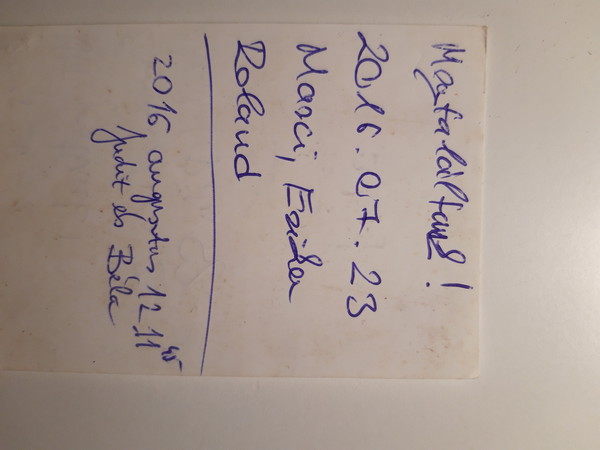 Megtaláltuk!
2016. 07. 23
Marci, Eszter
Roland
2016 augusztus 12 11 45
Judit és Béla